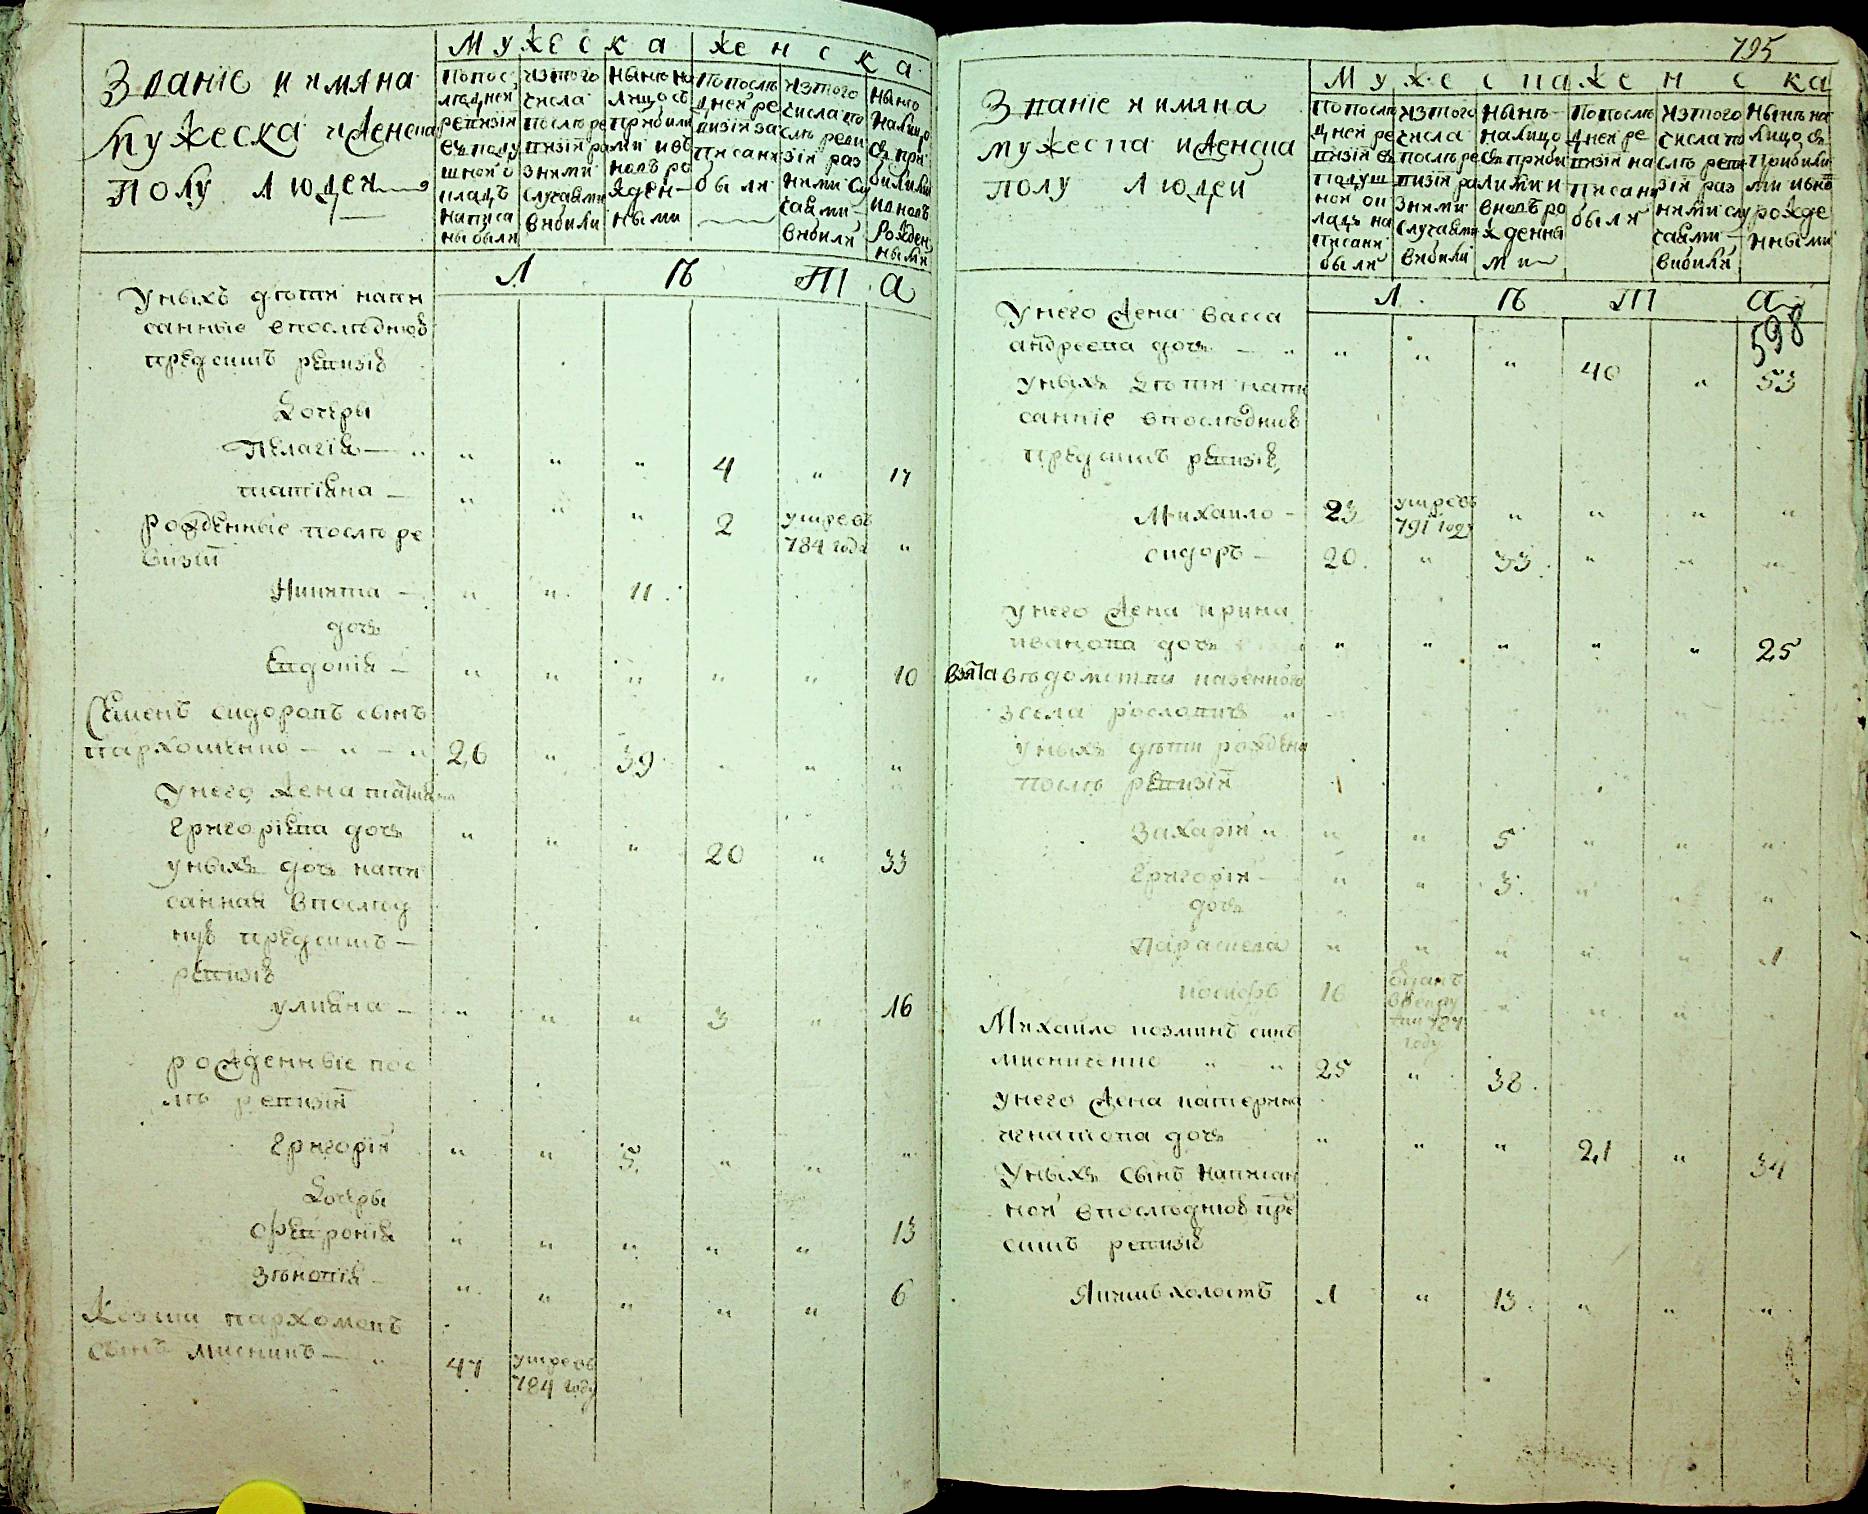 Званіе и имяна
мужеска и женска
полу людей
Мужеска
женска
По пос
лѣдней
ревизіи
въ поду
шной о
кладъ
написа
ны были
изъ того
числа
послѣ ре
визіи ра
зними
случаями
вибили
нынѣ на
лицо съ
прибили
ми и въ
новъ ро
жден
ными
По послѣ
дней ре
визіи за
писани
были
изъ того
числа по
слѣ реви
зіи раз
ними слу
чаями
вибили
нынѣ
налицо
съ при
билими
и вновь
рожден
ными
Л ѣ т а
у ныхъ дѣти напи
санные в послѣдней
пред симъ ревизіи
дочеры
Пелагія 4 17
татіяна 2 умре въ 784 года
рожденные послѣ ре
визіи
Никита 11
дочь
Евдокія 10
Семенъ сидоровъ сынъ
пархоменко 26 39
у него жена татіяна
григоріева дочь 20 33
у ныхъ дочь напи
санная в послед
ней пред симъ
ревизіи
улияна 3 16
рожденные пос
лѣ ревизіи
григорій 5
дочеры
Февронія 13
Зѣновія 6
Козма пархомовъ
сынъ мисникъ 47 умре въ 784 году
795
Званіе и имяна
мужеска и женска
полу людей
Мужеска женска
По послѣ
дней ре
визіи въ
подуш
ной ок
ладъ на
писани
были
изъ того
числа
послѣ ре
визіи ра
зними
случаями
вибили
нынѣ
налицо
съ приби
лими и
вновъ ро
жденны
ми
По послѣ
дней ре
визіи на
писани
были
изъ того
числа по
слѣ реви
зіи раз
ними слу
чаями
вибили
нынѣ на
лицо съ
прибили
ми и вновь
рожде
нными
Л ѣ т а
598
у него жена васса
андреева дочь 40 53
у ныхъ дѣти напи
санніе в послѣдней
пред симъ ревизіи,
Михайло 23 умре въ 791 году
сидоръ 20 33
у него жена ирина
иванова дочь 25
взята въ домства казенного
з села рословки
у ныхъ дѣти рождени
послѣ ревизіи
Захарій 5
Григорій 3
дочь
Параскева 1
никифоръ 16
Михайло козминъ синъ
мисниченко 25 38
у него жена катерина
игнатова дочь 21 34
у ныхъ сынъ написан
ной в послѣдней пред
симъ ревизіи
Якимъ холостъ 1 13